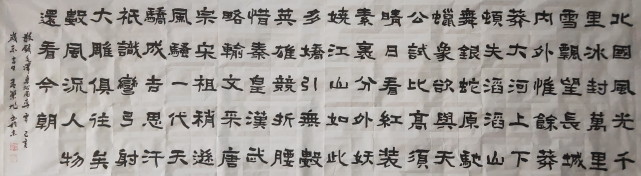 北國風光千
里冰封萬里
雪飄望長城
内外惟餘莽
莽大河上下
頓失滔滔山
舞銀蛇原馳
蠟象欲與天
公試比高須
晴日看紅裝
素裹分外妖
嬈江山如此
多嬌引無數
英雄競折腰
惜秦皇漢武
略輸文采唐
宗宋祖稍遜
風騷一代天
驕成吉思汗
祇識彎弓射
大雕俱往矣
數風流人物
還看今朝